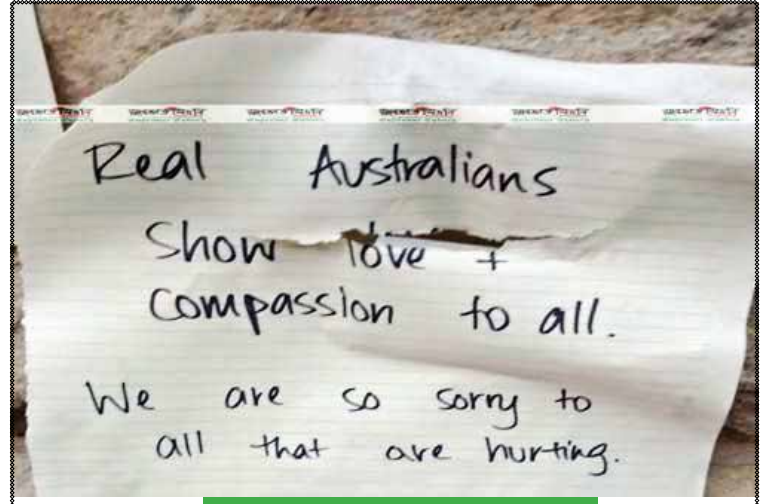 Real Australians
Show love +
compassion to all.
We are so sorry to
all that are hurting.